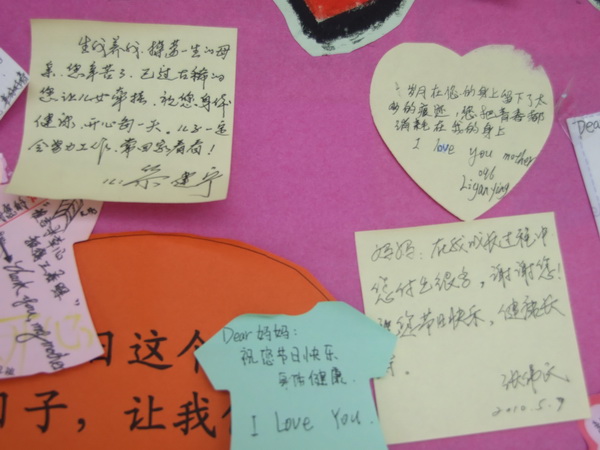 生我养我、操劳一生的母
亲、您辛苦了、已过古稀的
您让儿女牵挂、祝您身体
健康、开心每一天。儿子一定
会努力工作、常回家看看！
岁月在您的身上留下了太
多的痕迹，您把青春都
消耗在我的身上
I love you mother
096
Liganying
妈妈：在我成长过程中
您付出很多，谢谢您！
祝您节日快乐，健康长
寿。
2010.5.9
Dear 妈妈：
祝您节日快乐
身体健康.
I Love You.
日这个
子，让我
Thank you my mother
Dear